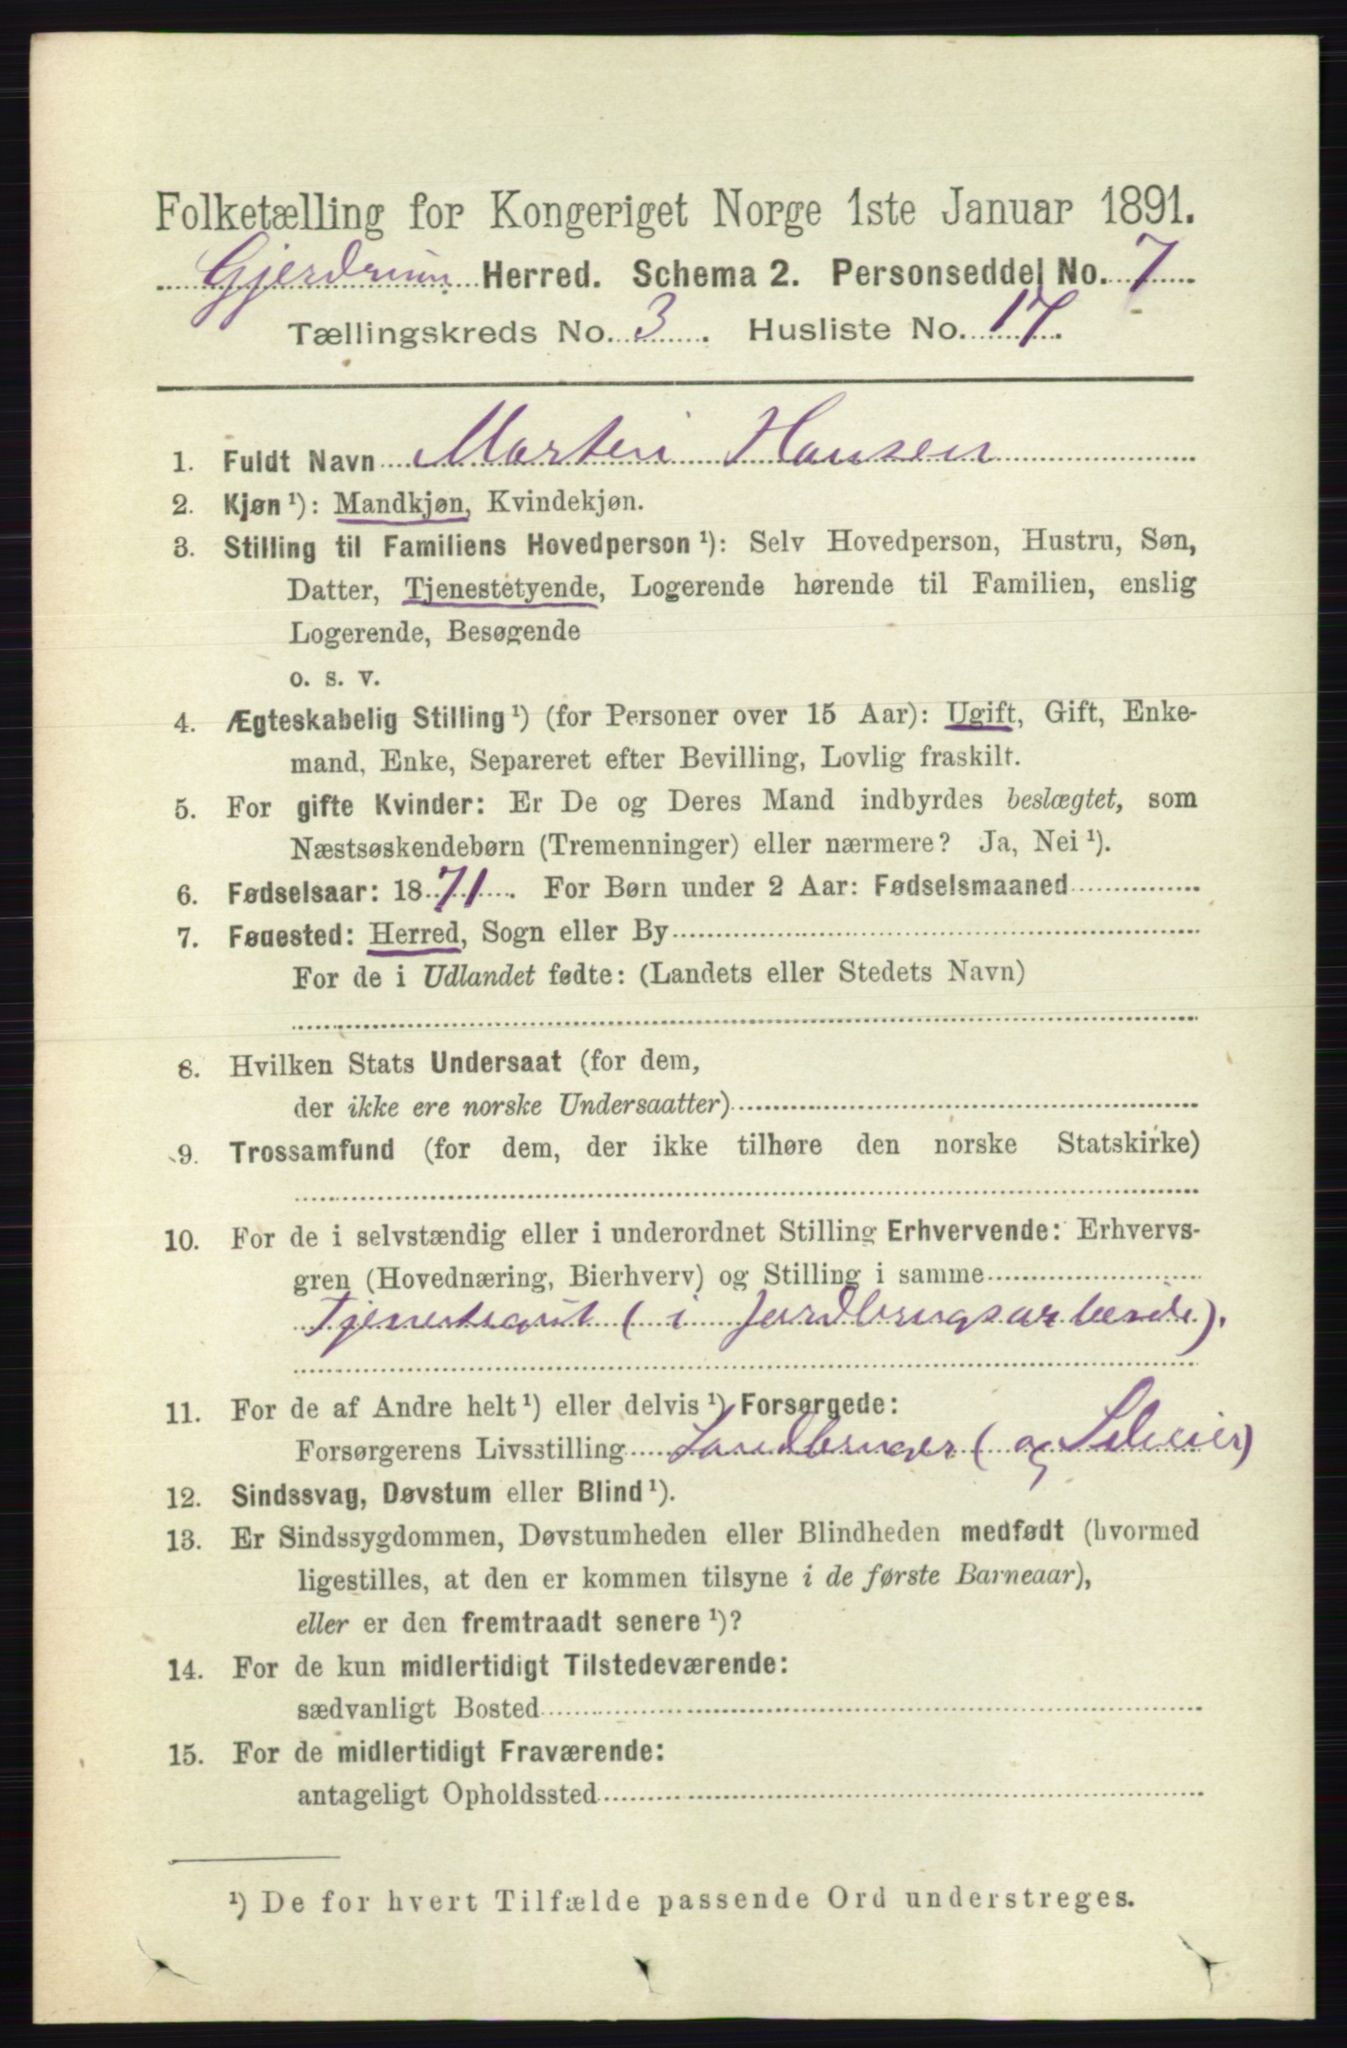 Folketælling for Kongeriget Norge 1ste Januar 1891.
Gjerdrum Herred. Schema 2. Personseddel No. 7
Tællingskreds No. 3. Husliste No. 17.
1. Fuldt Navn Morten Hansen
2. Kjøn¹): Mandkjøn, Kvindekjøn.
3. Stilling til Familiens Hovedperson¹): Selv Hovedperson, Hustru, Søn,
Datter, Tjenestetyende, Logerende hørende til Familien, enslig
Logerende, Besøgende
o. s. v.
4. Ægteskabelig Stilling¹) (for Personer over 15 Aar): Ugift, Gift, Enke-
mand, Enke, Separeret efter Bevilling, Lovlig fraskilt.
5. For gifte Kvinder: Er De og Deres Mand indbyrdes beslægtet, som
Næstsøskendebørn (Tremenninger) eller nærmere? Ja, Nei¹).
6. Fødselsaar: 1871. For Børn under 2 Aar: Fødselsmaaned
7. Fødested: Herred, Sogn eller By
For de i Udlandet fødte: (Landets eller Stedets Navn)
8. Hvilken Stats Undersaat (for dem,
der ikke ere norske Undersaatter)
9. Trossamfund (for dem, der ikke tilhøre den norske Statskirke)
10. For de i selvstændig eller i underordnet Stilling Erhvervende: Erhvervs-
gren (Hovednæring, Bierhverv) og Stilling i samme
Tjenestegut (i Jordbrugsarbeide).
11. For de af Andre helt¹) eller delvis¹) Forsørgede:
Forsørgerens Livsstilling Landbruger (og Seleier)
12. Sindssvag, Døvstum eller Blind¹).
13. Er Sindssygdommen, Døvstumheden eller Blindheden medfødt (hvormed
ligestilles, at den er kommen tilsyne i de første Barneaar),
eller er den fremtraadt senere¹)?
14. For de kun midlertidigt Tilstedeværende:
sædvanligt Bosted
15. For de midlertidigt Fraværende:
antageligt Opholdssted
¹) De for hvert Tilfælde passende Ord understreges.